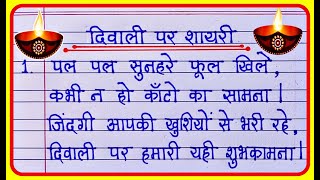 दिवाली पर शायरी
1. पल पल सुनहरे फूल खिले,
कभी न हो काँटो का सामना।
जिंदगी आपकी खुशियों से भरी रहे,
दिवाली पर हमारी यही शुभकामना।